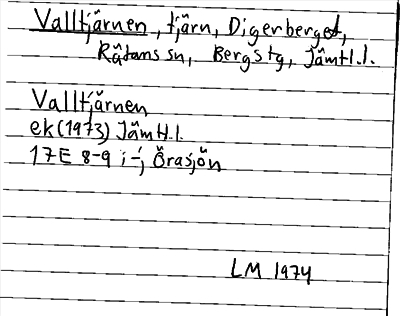 Valltjärnen, tjärn, Digerberget,
Rätans sn, Bergs tg, Jämtl.l.
Valltjärnen
ek (1973) Jämtl.l.
17E 8-9 i-j Örasjön
LM 1974